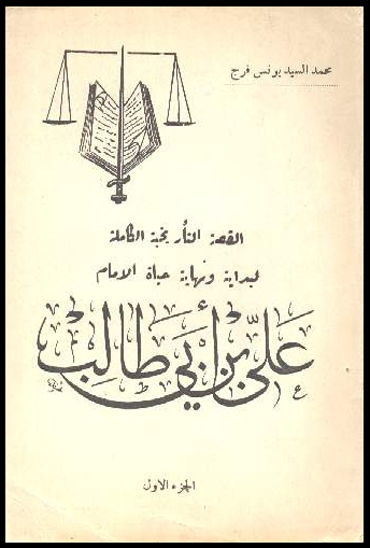 محمد السيد يونس فرج
القصة التأريخية الكاملة
لبداية ونهاية حياة الامام
علي بن أبي طالب
الجزء الاول